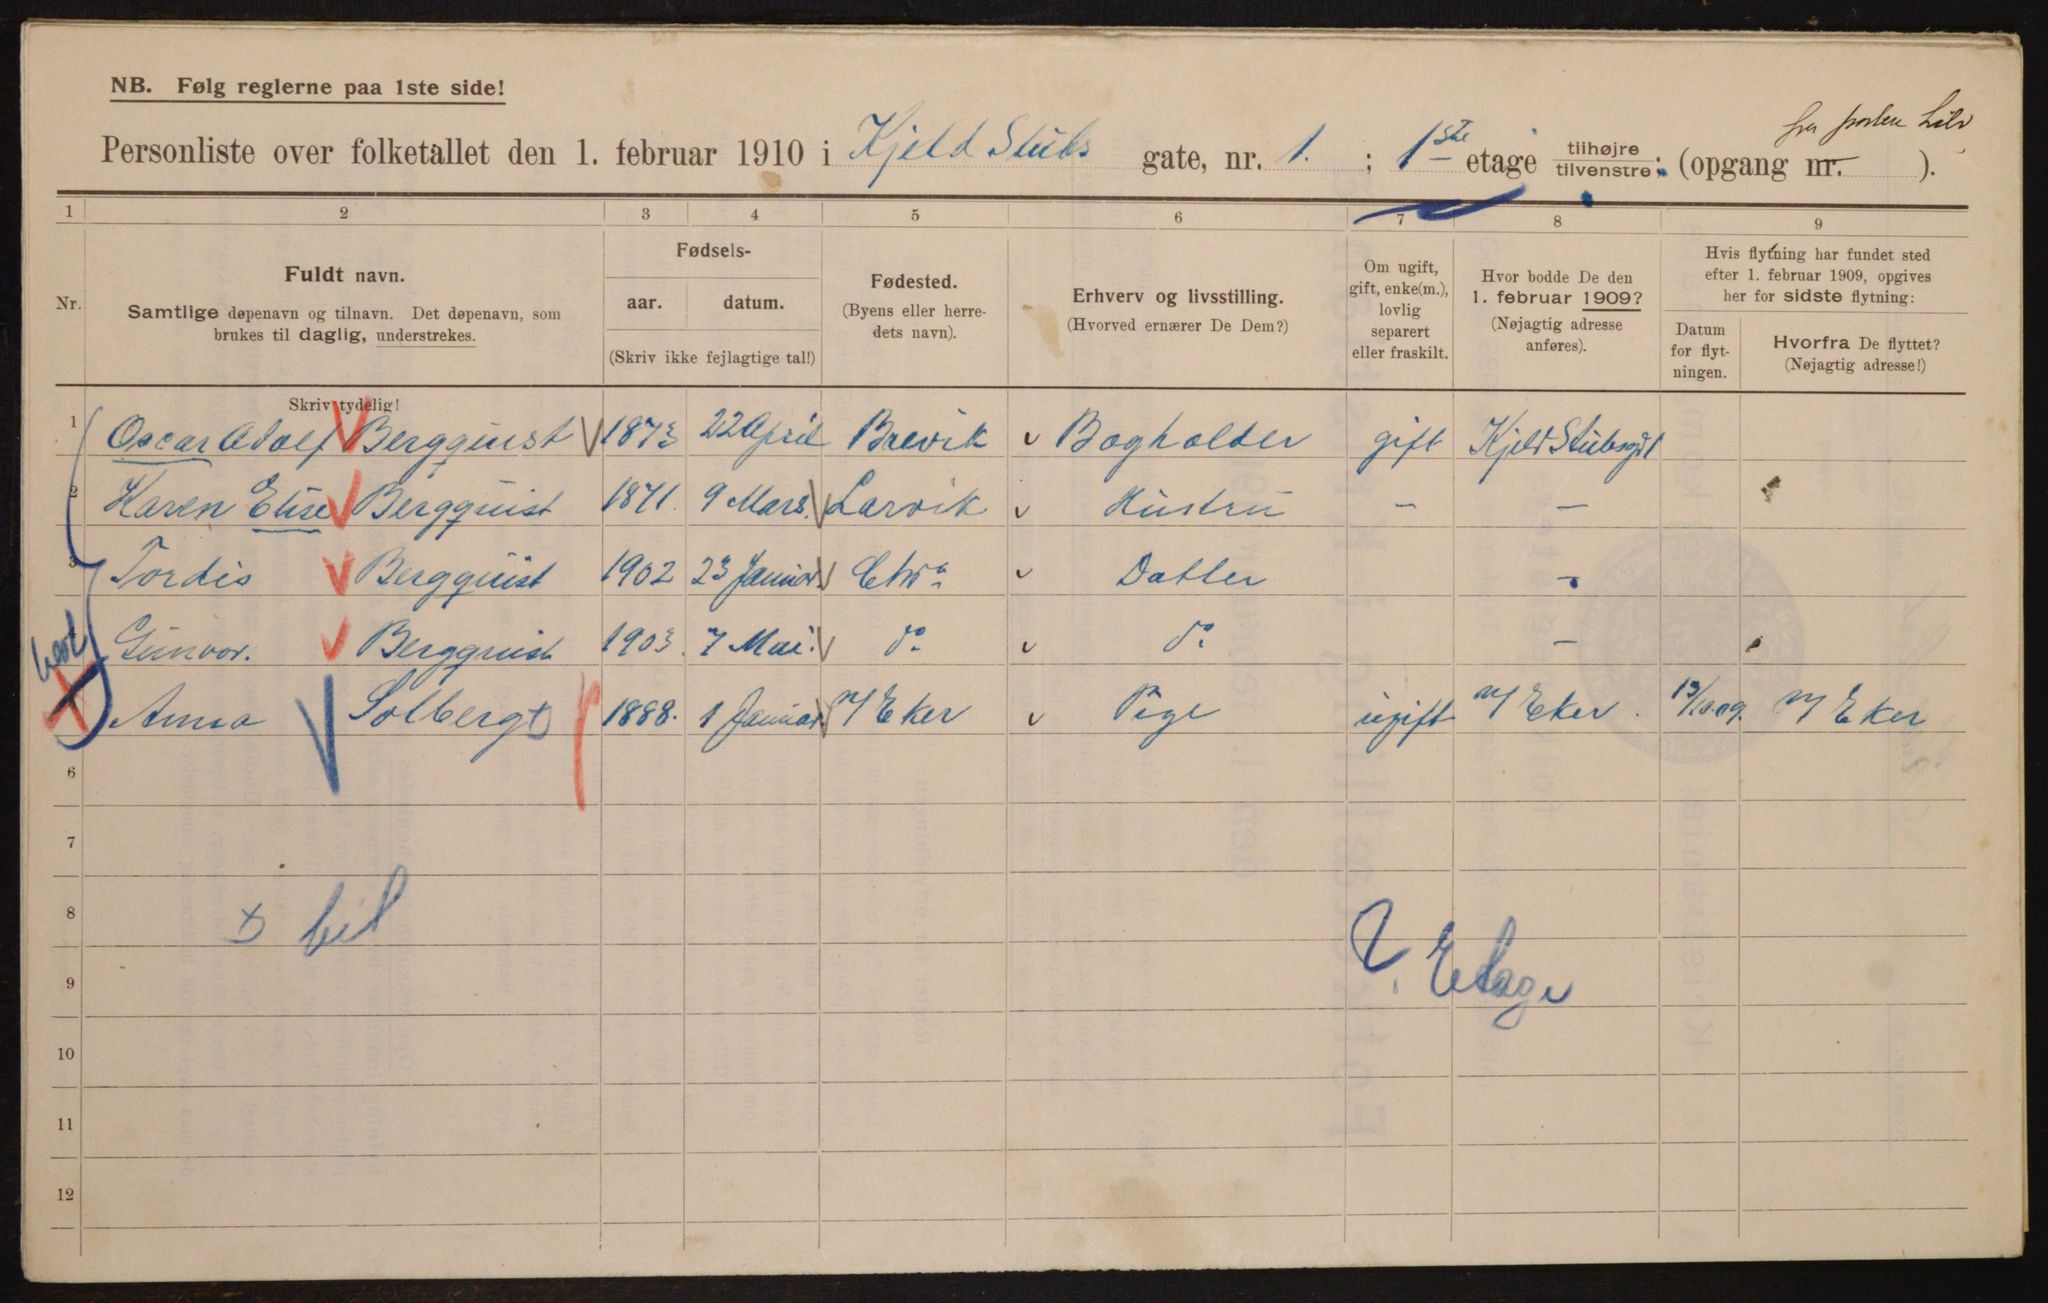 NB. Følg reglerne paa 1ste side!
Personliste over folketallet den 1. februar 1910 i Kjeld Stubs gate, nr. 1. ; 1ste etage tilhøjre tilvenstre; (opgang nr. ).
1 2 3 4 5 6 7 8 9
Nr.
Fuldt navn.
Samtlige døpenavn og tilnavn. Det døpenavn, som
brukes til daglig, understrekes.
Skriv tydelig!
Fødsels-
aar. datum.
(Skriv ikke fejlagtige tal!)
Fødested.
(Byens eller herre-
dets navn).
Erhverv og livsstilling.
(Hvorved ernærer De Dem?)
Om ugift,
gift, enke(m.),
lovlig
separert
eller fraskilt.
Hvor bodde De den
1. februar 1909?
(Nøjagtig adresse
anføres).
Hvis flytning har fundet sted
efter 1. februar 1909, opgives
her for sidste flytning:
Datum
for flyt-
ningen.
Hvorfra De flyttet?
(Nøjagtig adresse!)
1 Oscar Adolf Bergquist 1873 22 April Brevik Bogholder gift Kjeld Stubsgt 1
2 Karen Elise Bergquist 1871. 9 Mars. Larvik Hustru - -
3 Tordis Bergquist 1902 23 Januar Chra Datter -
4 Gunvor. Bergquist 1903. 7 Mai. do do -
Anna Solberg 1888. 1 Januar N Eker Pige ugift N Eker. 13/10.09. N Eker
6
7
8
9
10
11
12
2. Etage